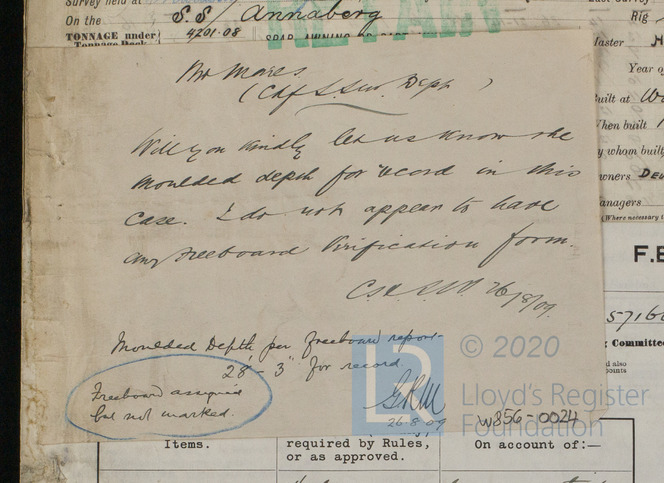 Survey held at
On the S.S/ Annaberg
TONNAGE under
Tonnage Deck
4201.08
Rig
Master
Year of
Built at
When built
By whom built
Owners
Managers
(Where necessary
Mr Mares.
Will you kindly let us know the
moulded depth for record in this
case. I do not appear to have
any Freeboard Verification form.
26/8/09.
Moulded Depth per freeboard report
28'-3" for record.
Freeboard assigned
but not marked.
GRM
26.8.09
© 2020
Lloyd's Register
Foundation
W856-0024
F.E
5716
Committee
Items.
required by Rules,
or as approved.
On account of:—